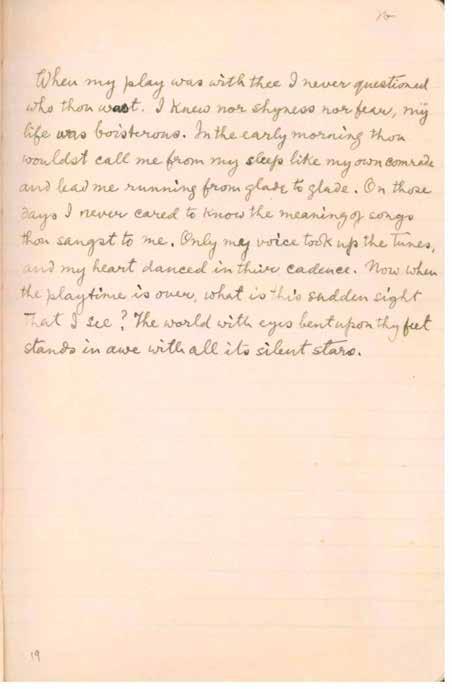 When my play was with thee I never questioned
who thou wast. I knew nor shyness nor fear, my
life was boisterous. In the early morning thou
wouldst call me from my sleep like my own comrade
and lead me running from glade to glade. On those
days I never cared to know the meaning of songs
thou sangst to me. Only my voice took up the tunes,
and my heart danced in their cadence. Now when
the playtime is over, what is this sudden sight
That I see? The world with eyes bent upon thy feet
stands in awe with all its silent stars.
19